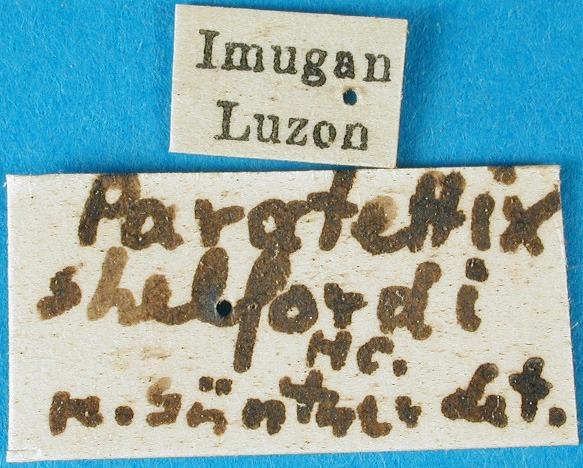 Imugan
Luzon
Paratettix
shelfordi
Hc.
K. Günther det.